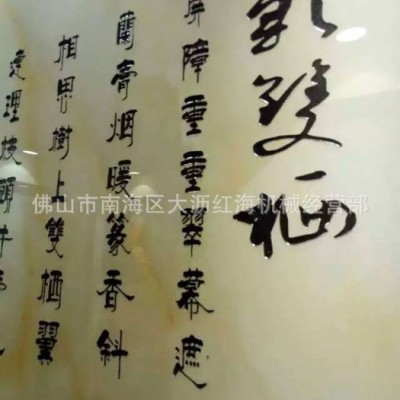 雙栖
屏障重重翠幕遮
蘭膏烟暖篆香斜
相思樹上雙栖翼
連理枝
佛山市南海区大沥红海机械经营部